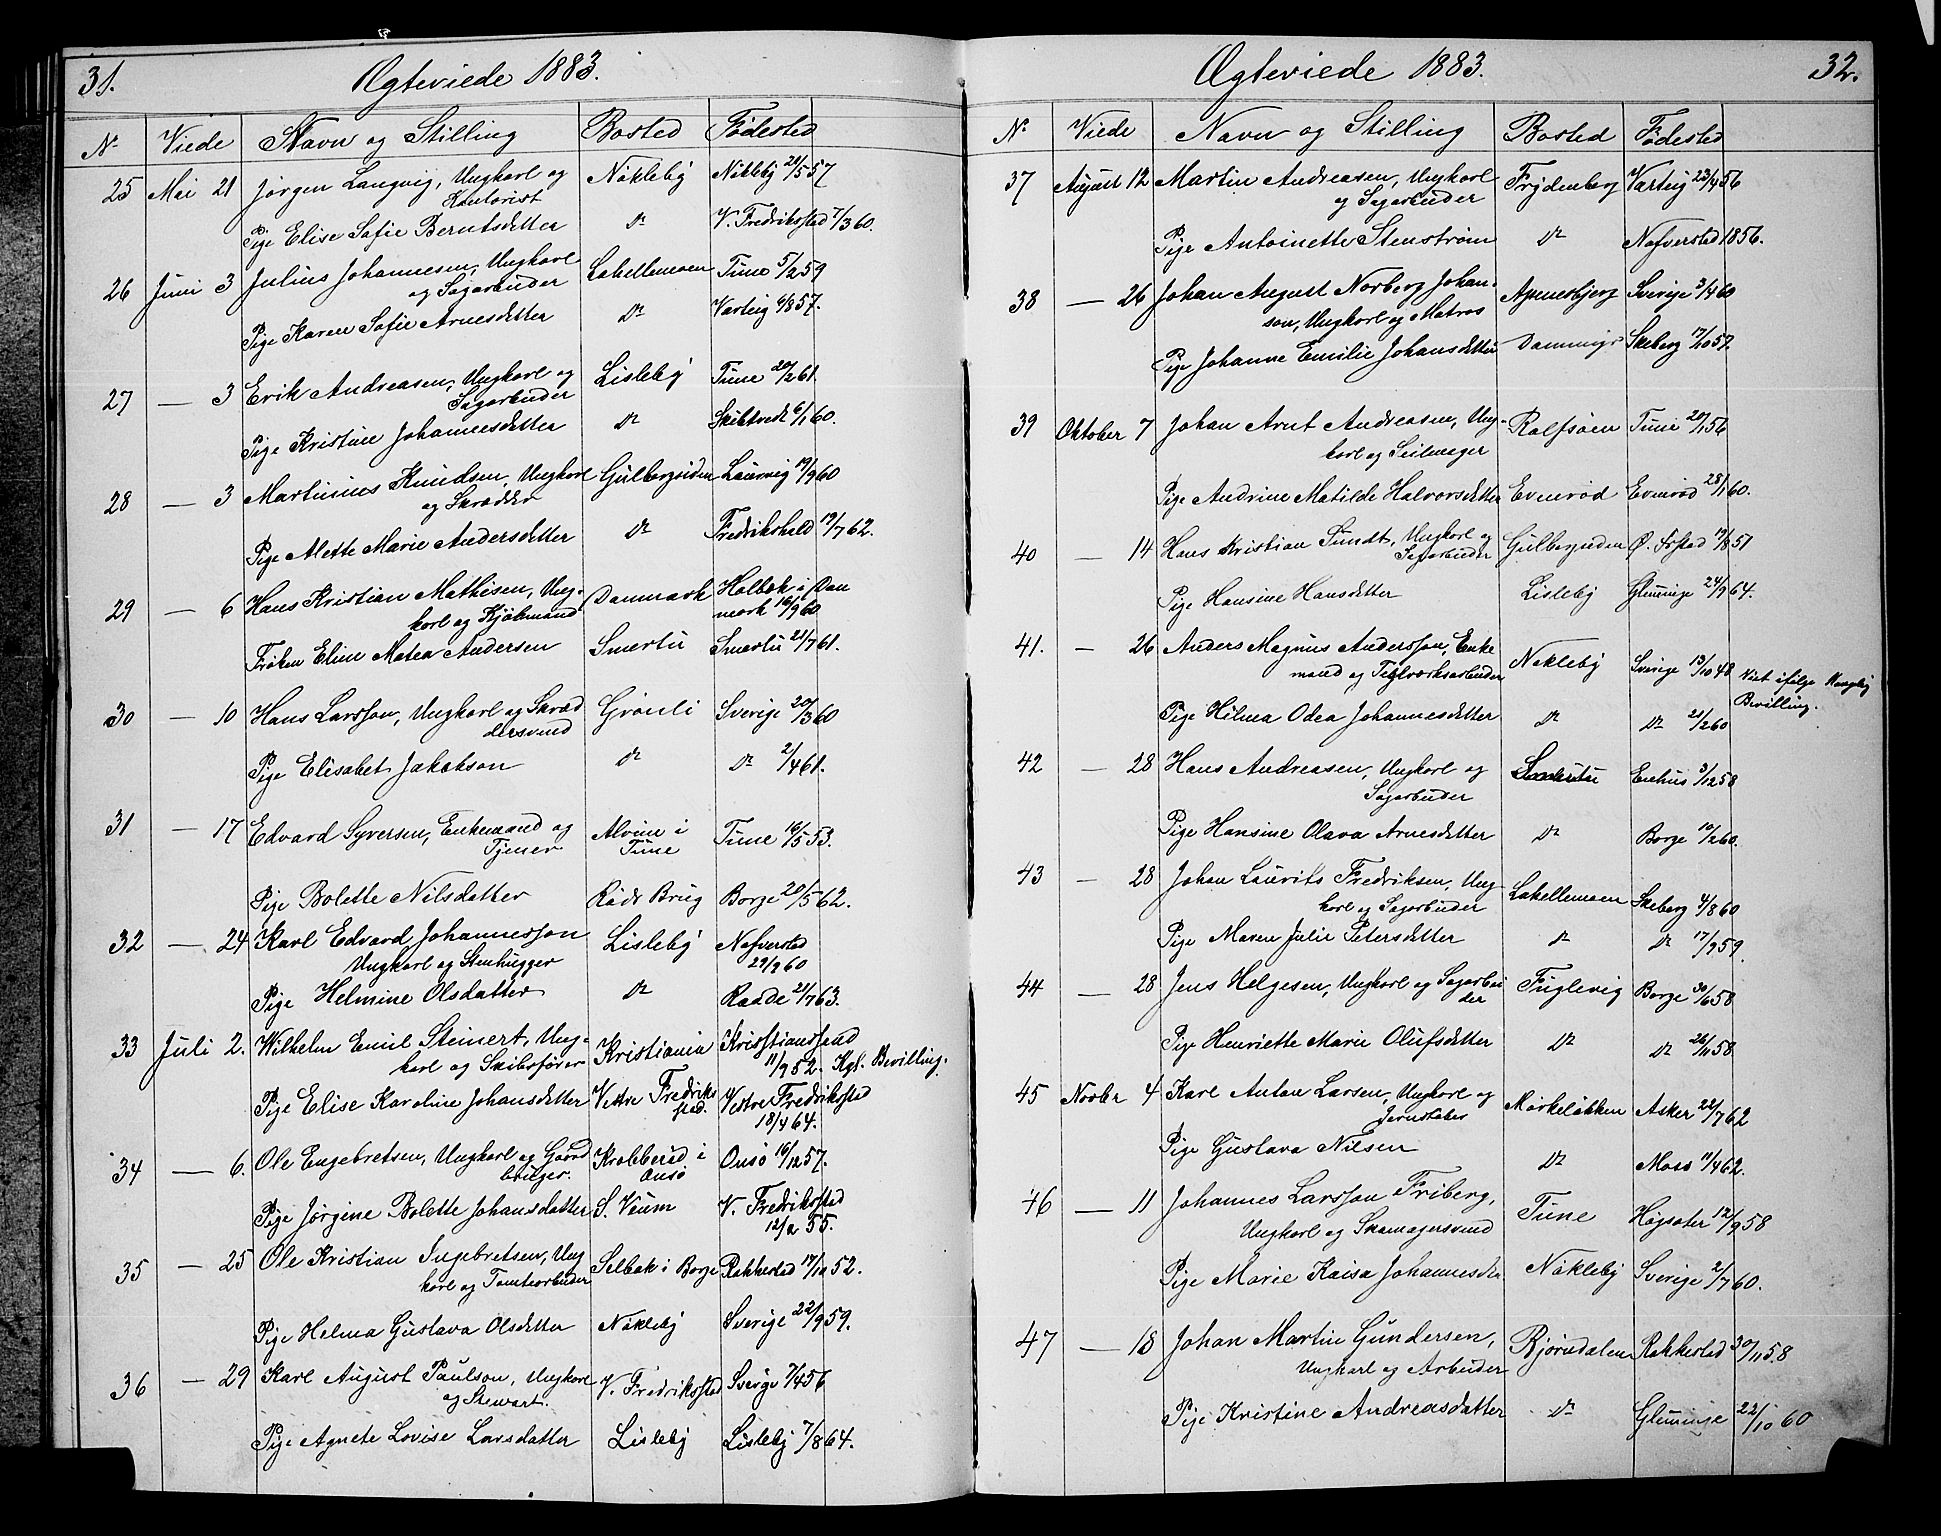 31. Ægteviede 1883.
No Viede Navn og Stilling Bosted Fødested
25 Mai 21 Jørgen Langvig, Ungkarl og Nökleby Nökleby 21/5 57
Kontorist
Pige Elise Sofie Berntsdatter Do V. Fredriksstad 7/3 60.
26 Juni 3 Julius Johannesen, Ungkarl Labellemoen Tune 5/2 59
og Sagarbeider
Pige Karen Sofie Arnesdatter Do Varteig 6/8 57.
27 — 3 Erik Andreasen, Ungkarl og Lisleby Tune 20/2 61.
Sagarbeider
Pige Kristine Johannesdatter Do Skibtvedt 6/1 60.
28 — 3 Martinius Knudsen, Ungkarl Gulbergsiden Laurvig 19/9 60
og Skrædder
Pige Alette Marie Andersdatter Do Fredrikshald 19/7 62.
29 — 6 Hans Kristian Mathisen, Ung- Danmark Holbek i Dan
karl og Kjöbmand mark 16/9 60
Frøken Eline Matea Andersen Smertu Smertu 21/7 61.
30 — 10 Hans Larsson, Ungkarl og Skræd Grönli Sverige 20/3 60
dersvend
Pige Elisabet Jakobson Do Do 2/4 61.
31 — 17 Edvard Syversen, Enkemand og Alvim i Tune 16/5 53.
Tjener Tune
Pige Bolette Nilsdatter Röds Brug Borge 20/5 62.
32 — 24 Karl Edvard Johannesson Lisleby Nafverstad
Ungkarl og Stenhugger 29/9 60
Pige Helmine Olsdatter Do Raade 21/7 63.
33 Juli 2. Wilhelm Emil Steinert, Ung- Kristiania Kristianssand
karl og Skibsfører 11/9 52. Kgl. Bevilling.
Pige Elise Karoline Johansdatter Vestre Fredriks Vestre Fredriksstad
stad. 18/4 64.
34 — 6. Ole Engebretsen, Ungkarl og Gaard Krabberöd i Onsö 16/12 57.
bruger. Onsö
Pige Jørgine Bolette Johansdatter S. Veum V. Fredriksstad
12/2 55.
35 — 25 Ole Kristian Ingebretsen, Ung Selbak i Borge Rakkestad 17/10 52.
karl og Tomtearbeider
Pige Helma Gustava Olsdatter Nökleby Sverige 22/9 59.
36 — 29 Karl August Paulson, Ungkarl V. Fredriksstad Sverige 7/4 56
og Stewart.
Pige Agnete Lovise Larsdatter Lisleby Lisleby 7/8 64.
Ægteviede 1883. 32.
No Viede Navn og Stilling Bosted Fødested
37 August 12 Martin Andreasen, Ungkarl Frydenberg Varteig 23/4 56
og Sagarbeider
Pige Antoinette Stenstrøm Do Nafverstad 1856.
38 — 26 Johan August Norberg Johan- Apenesbjerg Sverige 3/4 60
son, Ungkarl og Matros
Pige Johanne Emilie Johansdatter Skeberg 17/10 57.
39 Oktober 7 Johan Arnt Andreasen, Ung- Rolfsöen Tune 20/1 56
karl og Seilmager
Pige Andrine Matilde Halvorsdatter Evenröd Evenröd 28/1 60.
40 — 14 Hans Kristian Sundt, Ungkarl og Gulbergsiden Ø. Frstad 19/8 51
Sagarbeider
Pige Hansine Hansdatter Lisleby Glemminge 24/9 64.
41. — 26 Anders Magnus Andersson, Enke Nökleby Sverige 13/10 48 Viet ifølge Kongelig
mand og Teglverksarbeider Bevilling.
Pige Hilma Odea Johannesdatter Do Do 21/2 60
42 — 28 Hans Andreasen, Ungkarl og Enhus 3/12 58
Sagarbeider
Pige Hansine Olava Arnesdatter Do Borge 10/2 60.
43 — 28 Johan Laurits Fredriksen, Ung Labellemoen Skeberg 4/8 60
karl og Sagarbeider
Pige Maren Julie Petersdatter Do Do 17/9 59.
44 — 28 Jens Helgesen, Ungkarl og Sagarbei Fuglevig Borge 30/6 58
der
Pige Henriette Marie Olufsdatter Do Do 26/11 58
45 Novbr 4 Karl Anton Larsen, Ungkarl og Mörkelökken Asker 22/7 62
Jernstøber
Pige Gustava Nilsen Do Moss 11/4 62.
46 — 11 Johannes Larsson Friberg, Tune Högsäter 12/9 58
Ungkarl og Skomagersvend
Pige Marie Kaisa Johannesdr Nökleby Sverige 2/7 60.
47 — 18 Johan Martin Gundersen, Bjørndalen Rakkestad 30/11 58
Ungkarl og Arbeider
Pige Kristine Andreasdatter Do Glemminge 22/10 60